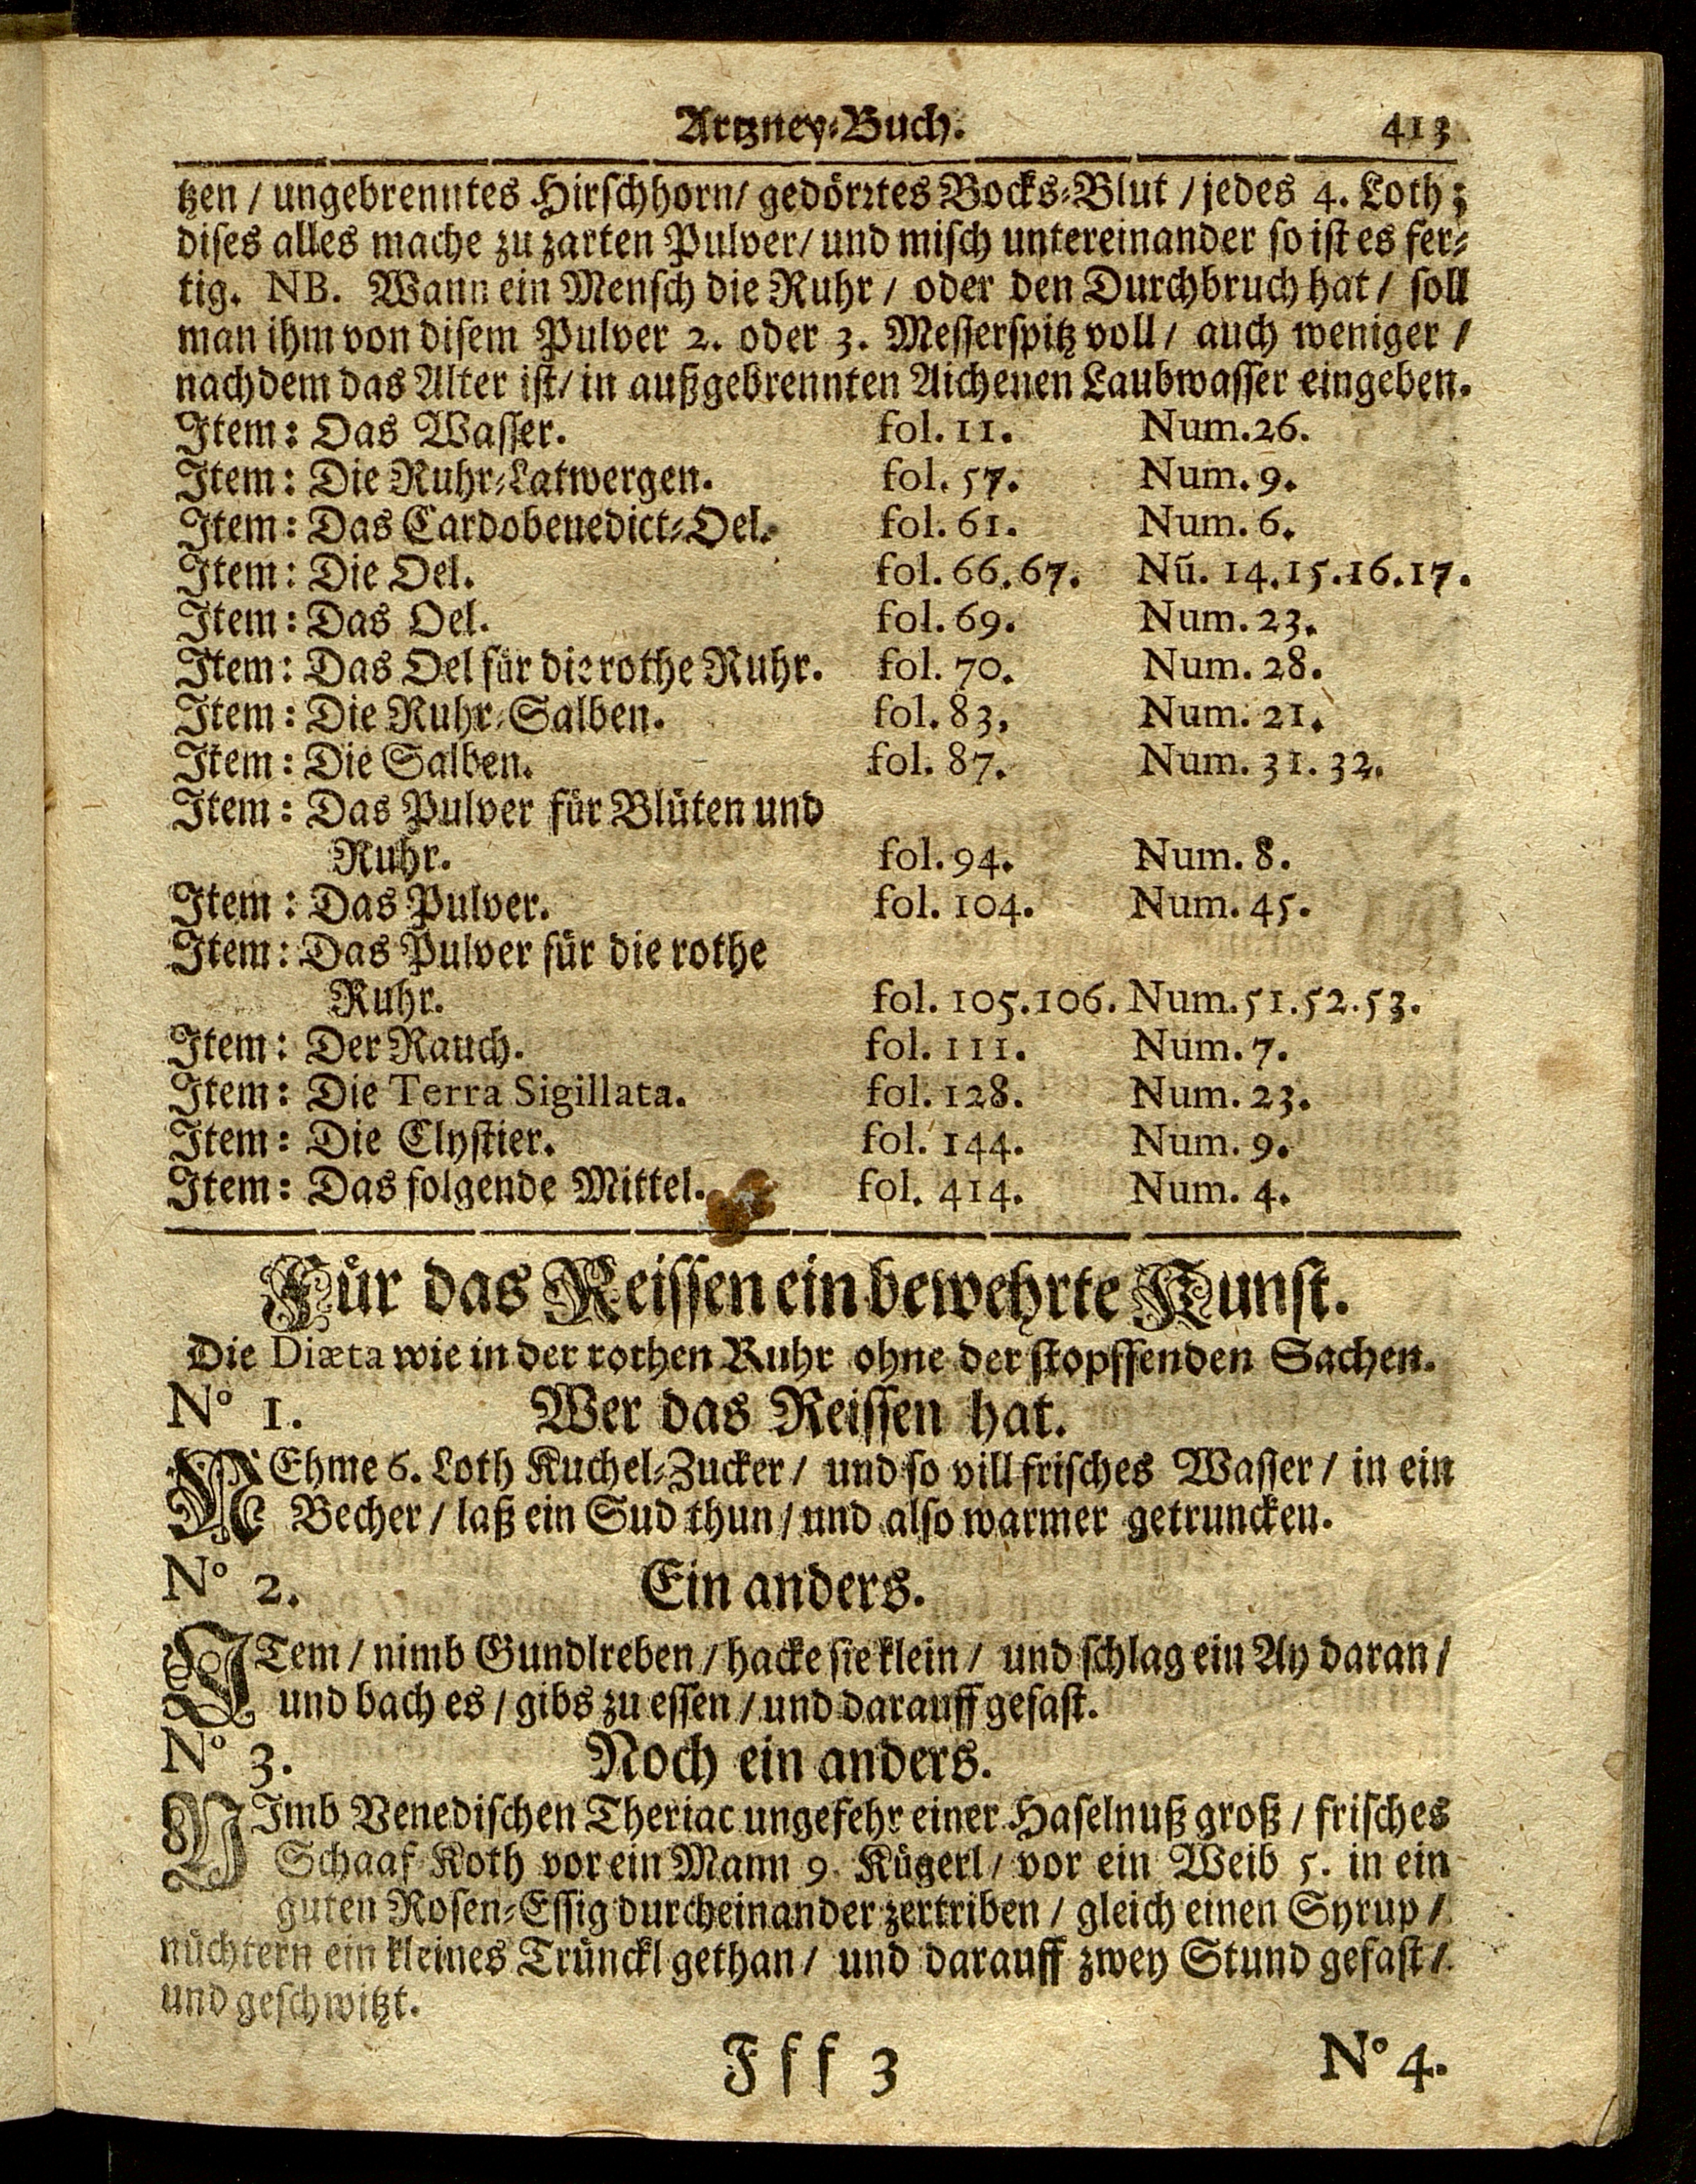 Artzney-Buch. 413
tzen / ungebrenntes Hirschhorn / gedörrtes Bocks-Blut / jedes 4. Loth;
dises alles mache zu zarten Pulver / und misch untereinander so ist es fer-
tig. NB. Wann ein Mensch die Ruhr / oder den Durchbruch hat / soll
man ihm von disem Pulver 2. oder 3. Messerspitz voll / auch weniger /
nachdem das Alter ist / in außgebrennten Aichenen Laubwasser eingeben.
Item: Das Wasser. fol. 11. Num. 26.
Item: Die Ruhr-Latwergen. fol. 57. Num. 9.
Item: Das Cardobenedict-Oel. fol. 61. Num. 6.
Item: Die Oel. fol. 66. 67. Nũ. 14. 15. 16. 17.
Item: Das Oel. fol. 69. Num. 23.
Item: Das Oel für die rothe Ruhr. fol. 70. Num. 28.
Item: Die Ruhr-Salben. fol. 83. Num. 21.
Item: Die Salben. fol. 87. Num. 31. 32.
Item: Das Pulver für Blüten und
Ruhr. fol. 94. Num. 8.
Item: Das Pulver. fol. 104. Num. 45.
Item: Das Pulver für die rothe
Ruhr. fol. 105. 106. Num. 51. 52. 53.
Item: Der Rauch. fol. 111. Num. 7.
Item: Die Terra Sigillata. fol. 128. Num. 23.
Item: Die Clystier. fol. 144. Num. 9.
Item: Das folgende Mittel. fol. 414. Num. 4.
Für das Reissen ein bewehrte Kunst.
Die Diæta wie in der rothen Ruhr ohne der stopffenden Sachen.
N° 1. Wer das Reissen hat.
NEhme 6. Loth Kuchel-Zucker / und so vill frisches Wasser / in ein
Becher / laß ein Sud thun / und also warmer getruncken.
N° 2. Ein anders.
ITem / nimb Gundlreben / hacke sie klein / und schlag ein Ay daran /
und bach es / gibs zu essen / und darauff gefast.
N° 3. Noch ein anders.
NImb Venedischen Theriac ungefehr einer Haselnuß groß / frisches
Schaaf Koth vor ein Mann 9. Kügerl / vor ein Weib 5. in ein
guten Rosen-Essig durcheinander zertriben / gleich einen Syrup /
nüchtern ein kleines Trünckl gethan / und darauff zwey Stund gefast /
und geschwitzt.
Fff 3 N° 4.